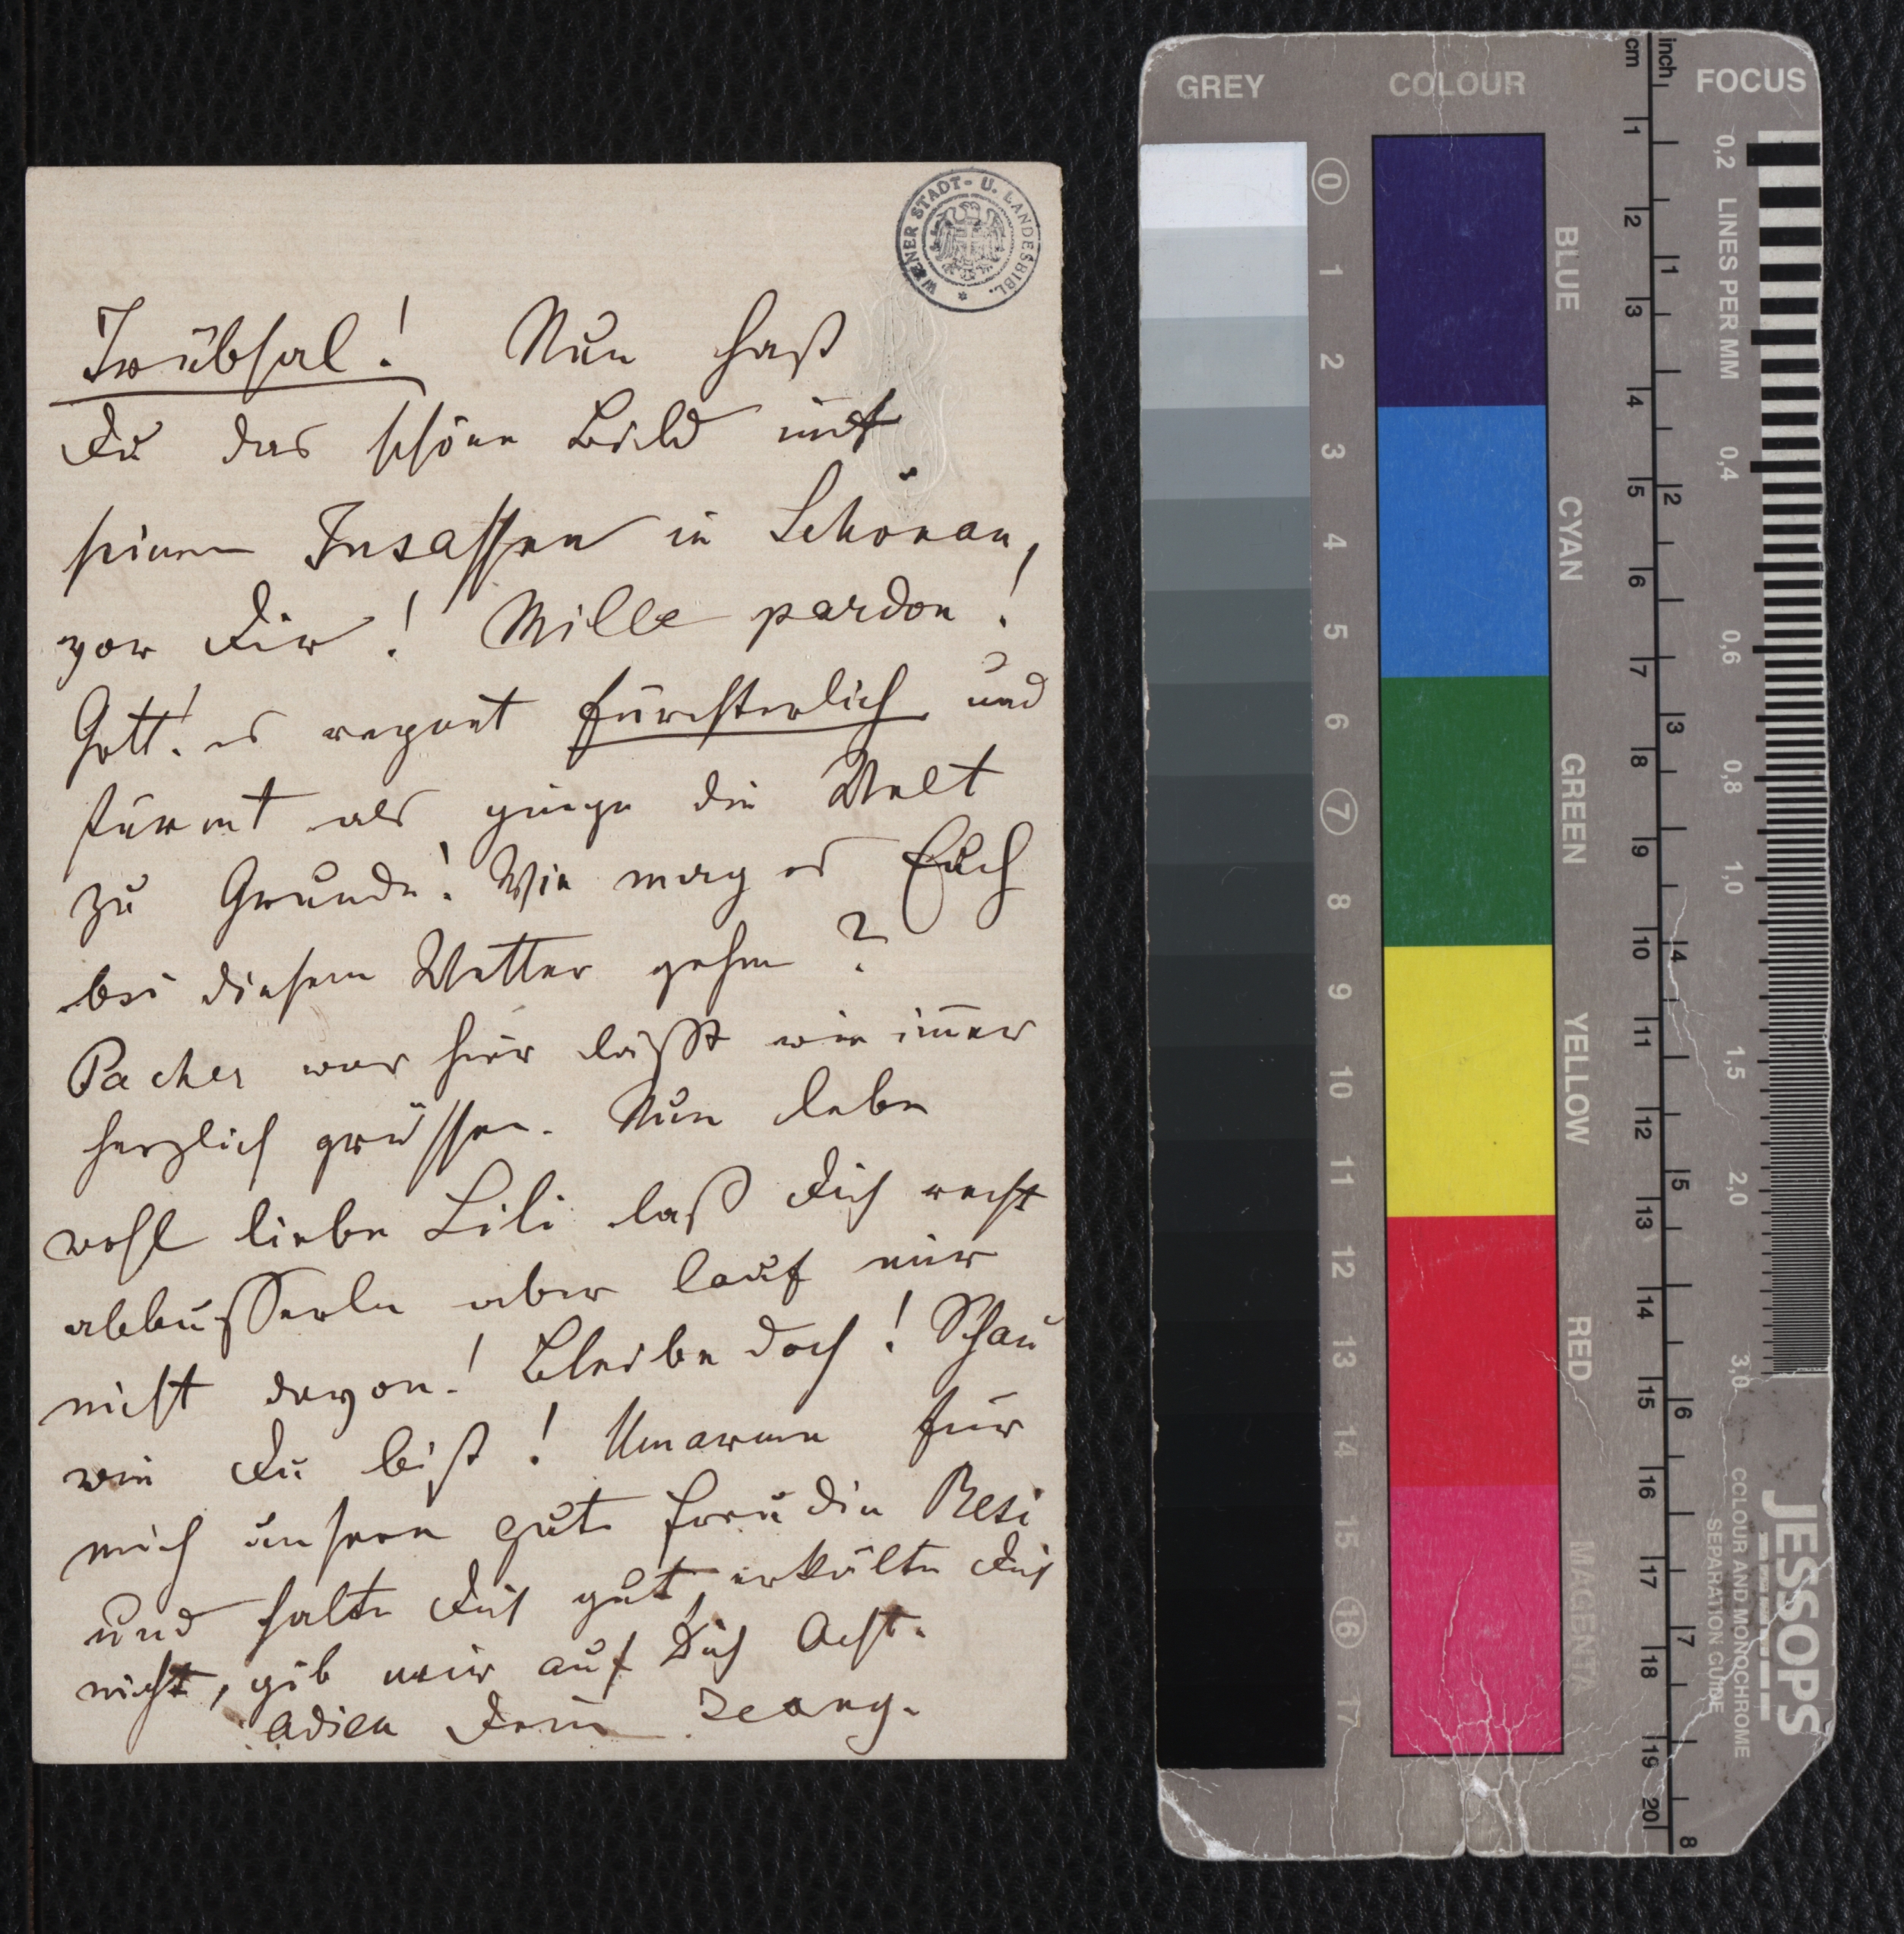 WIENER STADT- U. LANDESBIBL.
Trübsal! Nun hast
Du das schöne Bild mit
seinen Insassen in Schönau,
vor Dir! Mille pardon!
Gott! es regnet fürchterlich und
stürmt als ginge die Welt
zu Grunde! Wie mag es Euch
bei diesem Wetter gehen?
Pacher war hier läßt wie im̄er
herzlich grüssen. Nun lebe
wohl liebe Lili laß Dich recht
abbusserln aber lauf mir
nicht davon! Bleibe doch! Schau
wie Du bist! Umarme für
mich unsere gute Freudin Resi
und halte Dich gut, erkälte Dich
nicht, gib mir auf Dich Acht.
adieu Dein Georg.
GREY
COLOUR
FOCUS
cm
inch
0
1
2
3
4
5
6
7
8
9
10
11
12
13
14
15
16
17
BLUE
CYAN
GREEN
YELLOW
RED
MAGENTA
1
2
3
4
5
6
7
8
9
10
11
12
13
14
15
16
17
18
19
20
1
2
3
4
5
6
7
8
LINES PER MM
0,2
0,4
0,6
0,8
1,0
1,5
2,0
3,0
JESSOPS
COLOUR AND MONOCHROME
SEPARATION GUIDE